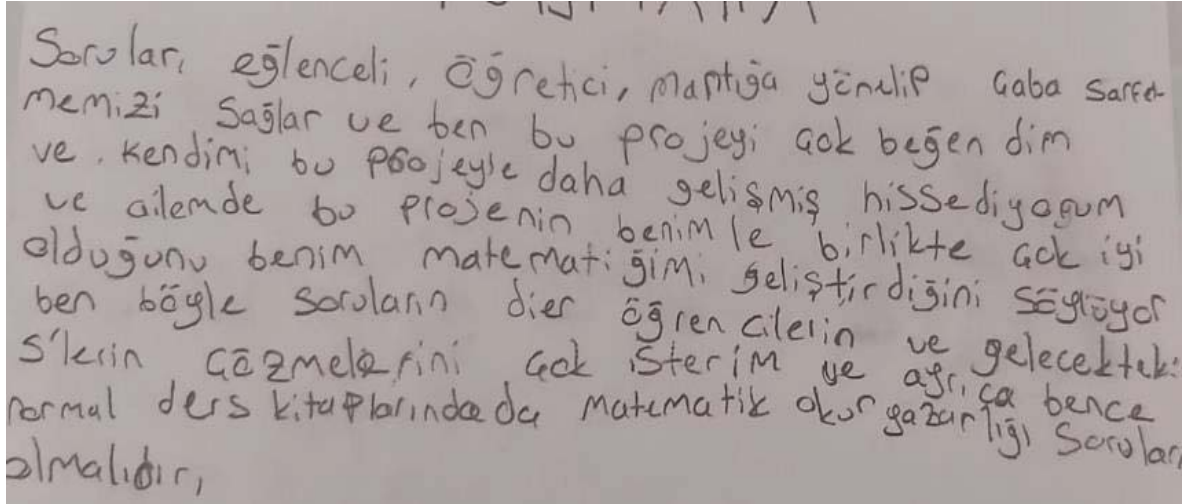 Sorular, eğlenceli, öğretici, mantığa yönelip çaba sarfet-
memizi sağlar ve ben bu projeyi çok beğen dim
ve kendimi bu projeyle daha gelişmiş hissediyorum
ve ailemde bu projenin benimle birlikte çok iyi
olduğunu benim matematiğimi geliştirdiğini söylüyor
ben böyle soruların dier öğrencilerin ve gelecekteki
5'lerin çözmelerini çok isterim ve ayrıca bence
normal ders kitaplarındada matematik okur yazarlığı soruları
olmalıdır,